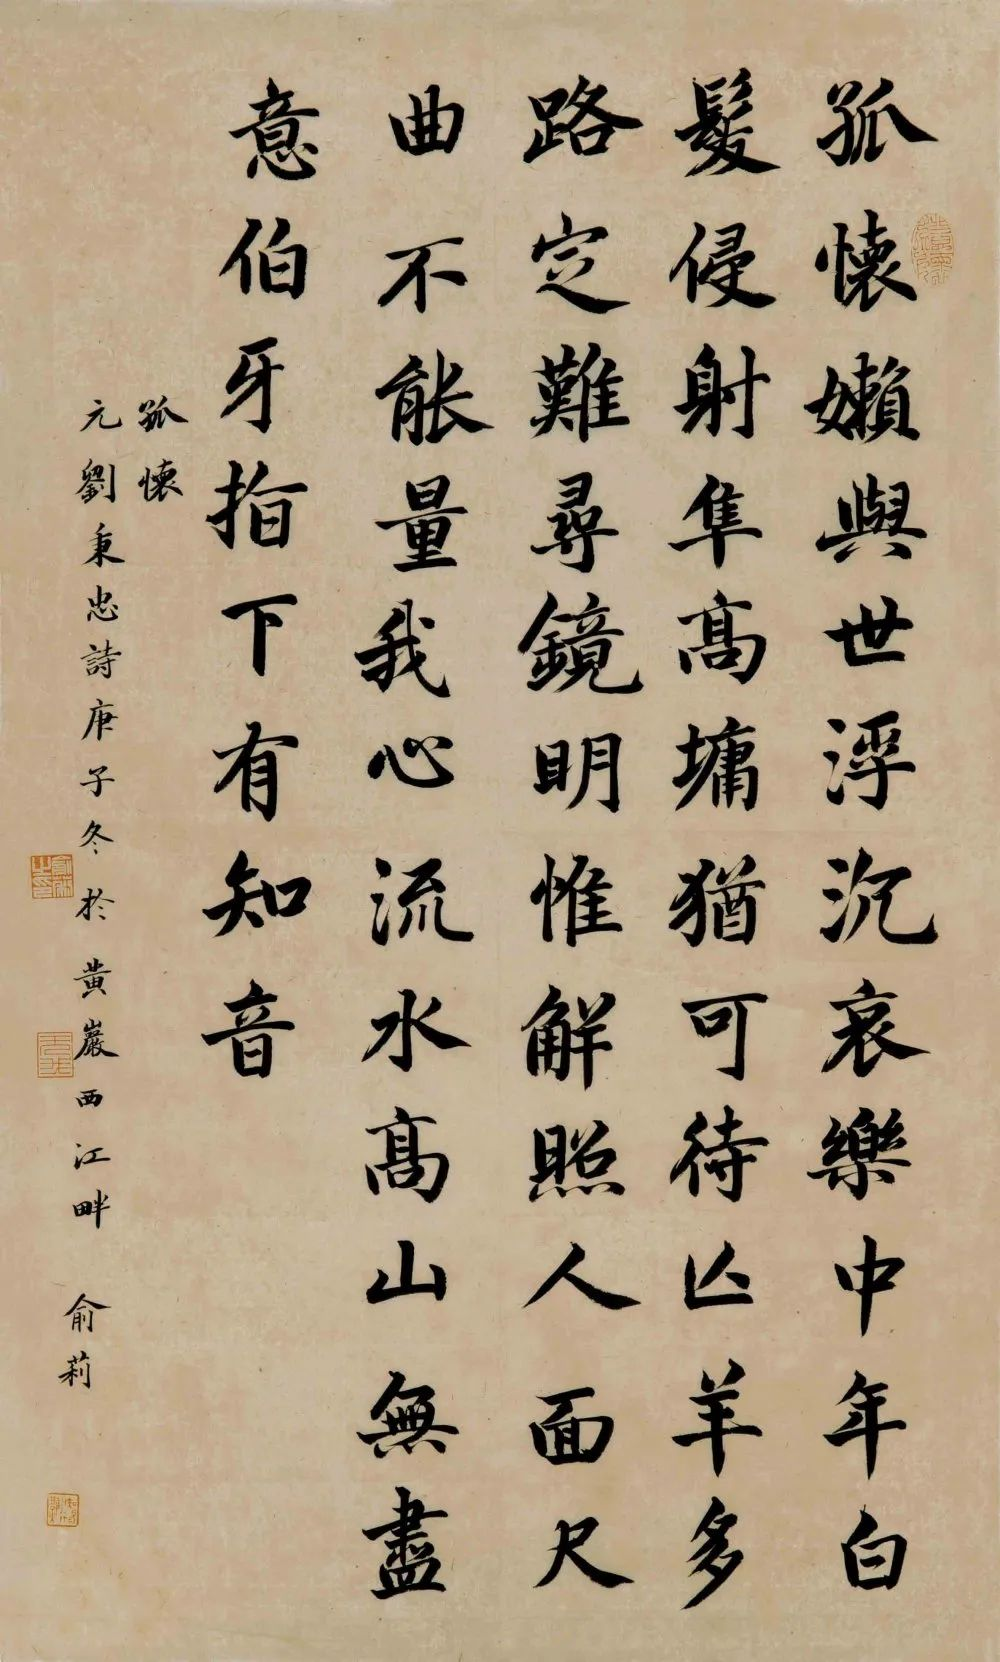 孤懷嬾與世浮沉哀樂中年白
髮侵射隼高墉猶可待亾羊多
路定難尋鏡明惟解照人面尺
曲不能量我心流水高山無盡
意伯牙指下有知音
孤懷
元劉秉忠詩庚子冬於黃巖西江畔 俞莉